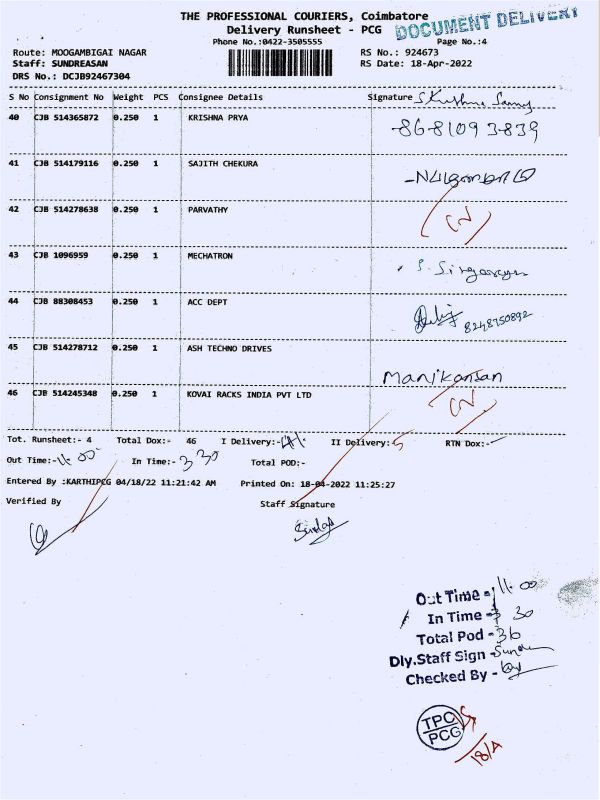 THE PROFESSIONAL COURIERS, Coimbatore
DOCUMENT DELIVERY
Delivery Runsheet - PCG
Phone No.:0422-3505555
Page No.:4
Route: MOOGAMBIGAI NAGAR
RS No.: 924673
Staff: SUNDREASAN
RS Date: 18-Apr-2022
DRS No.: DCJB92467304
S No Consignment No Weight PCS Consignee Details Signature
40 CJB 514365872 0.250 1 KRISHNA PRYA
8681093839
41 CJB 514179116 0.250 1 SAJITH CHEKURA
42 CJB 514278638 0.250 1 PARVATHY
43 CJB 1096959 0.250 1 MECHATRON
44 CJB 88308453 0.250 1 ACC DEPT
8248750892
45 CJB 514278712 0.250 1 ASH TECHNO DRIVES
Manikansan
46 CJB 514245348 0.250 1 KOVAI RACKS INDIA PVT LTD
Tot. Runsheet:- 4 Total Dox:- 46 I Delivery:- 41 II Delivery:- 5 RTN Dox:-
Out Time:- 11.00 In Time:- 3 30 Total POD:-
Entered By :KARTHIPCG 04/18/22 11:21:42 AM Printed On: 18-04-2022 11:25:27
Verified By Staff Signature
Out Time - 11.00
In Time - 3 30
Total Pod - 36
Dly.Staff Sign -
Checked By -
TPC
PCG
18/4